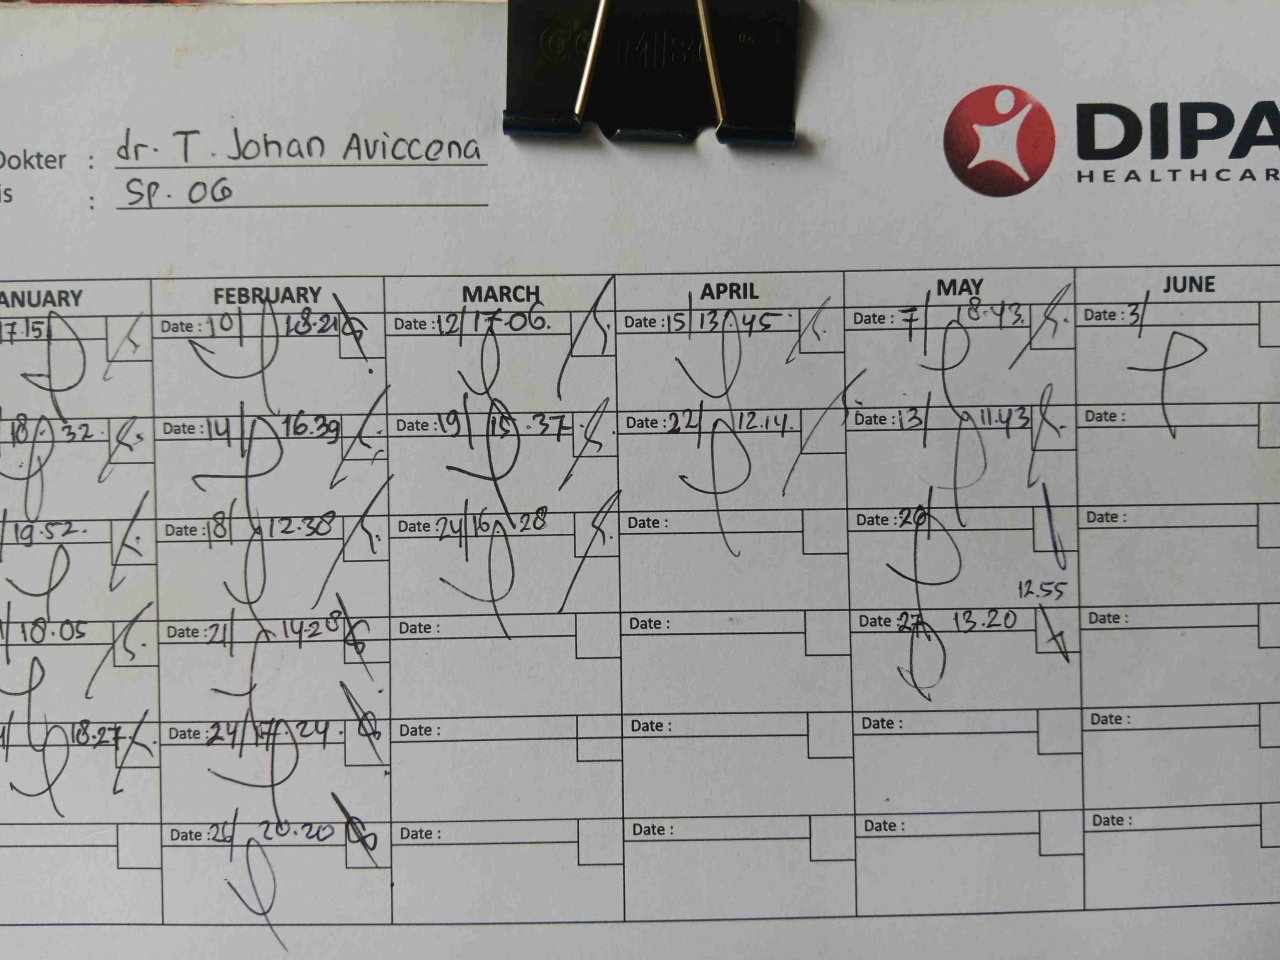 Dokter : dr. T. Johan Aviccena
is : Sp. OG
DIPA
HEALTHCAR
ANUARY FEBRUARY MARCH APRIL MAY JUNE
17.15 Date : 10/ 18.21 Date : 12/ 17.06. Date : 15/ 13.45 Date : 7/ 18.43. Date : 3/
18.32. Date : 14/ 16.39 Date : 19/ 15.37 Date : 22/ 12.14. Date : 13/ 11.43 Date :
19.52. Date : 18/ 12.38 Date : 24/ 16.28 Date : Date : 20/ Date :
12.55
18.05 Date : 21/ 14.28 Date : Date : Date : 27/ 13.20 Date :
18.27 Date : 24/ 17.24. Date : Date : Date : Date :
Date : 26/ 20.20 Date : Date : Date : Date :